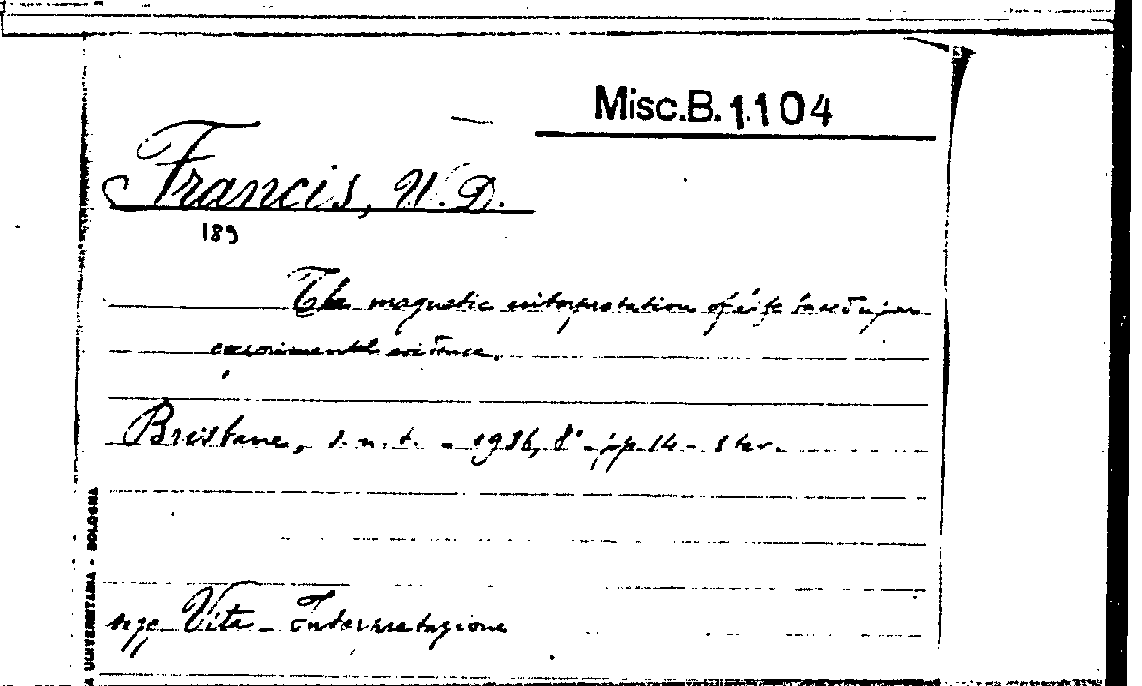 Misc.B.1104
Francis, W.D.
189
The magnetic interpretation of life based upon
experimental evidence.
Brisbane, s.n.t. - 1936, 8° pp. 14 - 1 tav.
Vita - Interpretazione
A UNIVERSITARIA - BOLOGNA